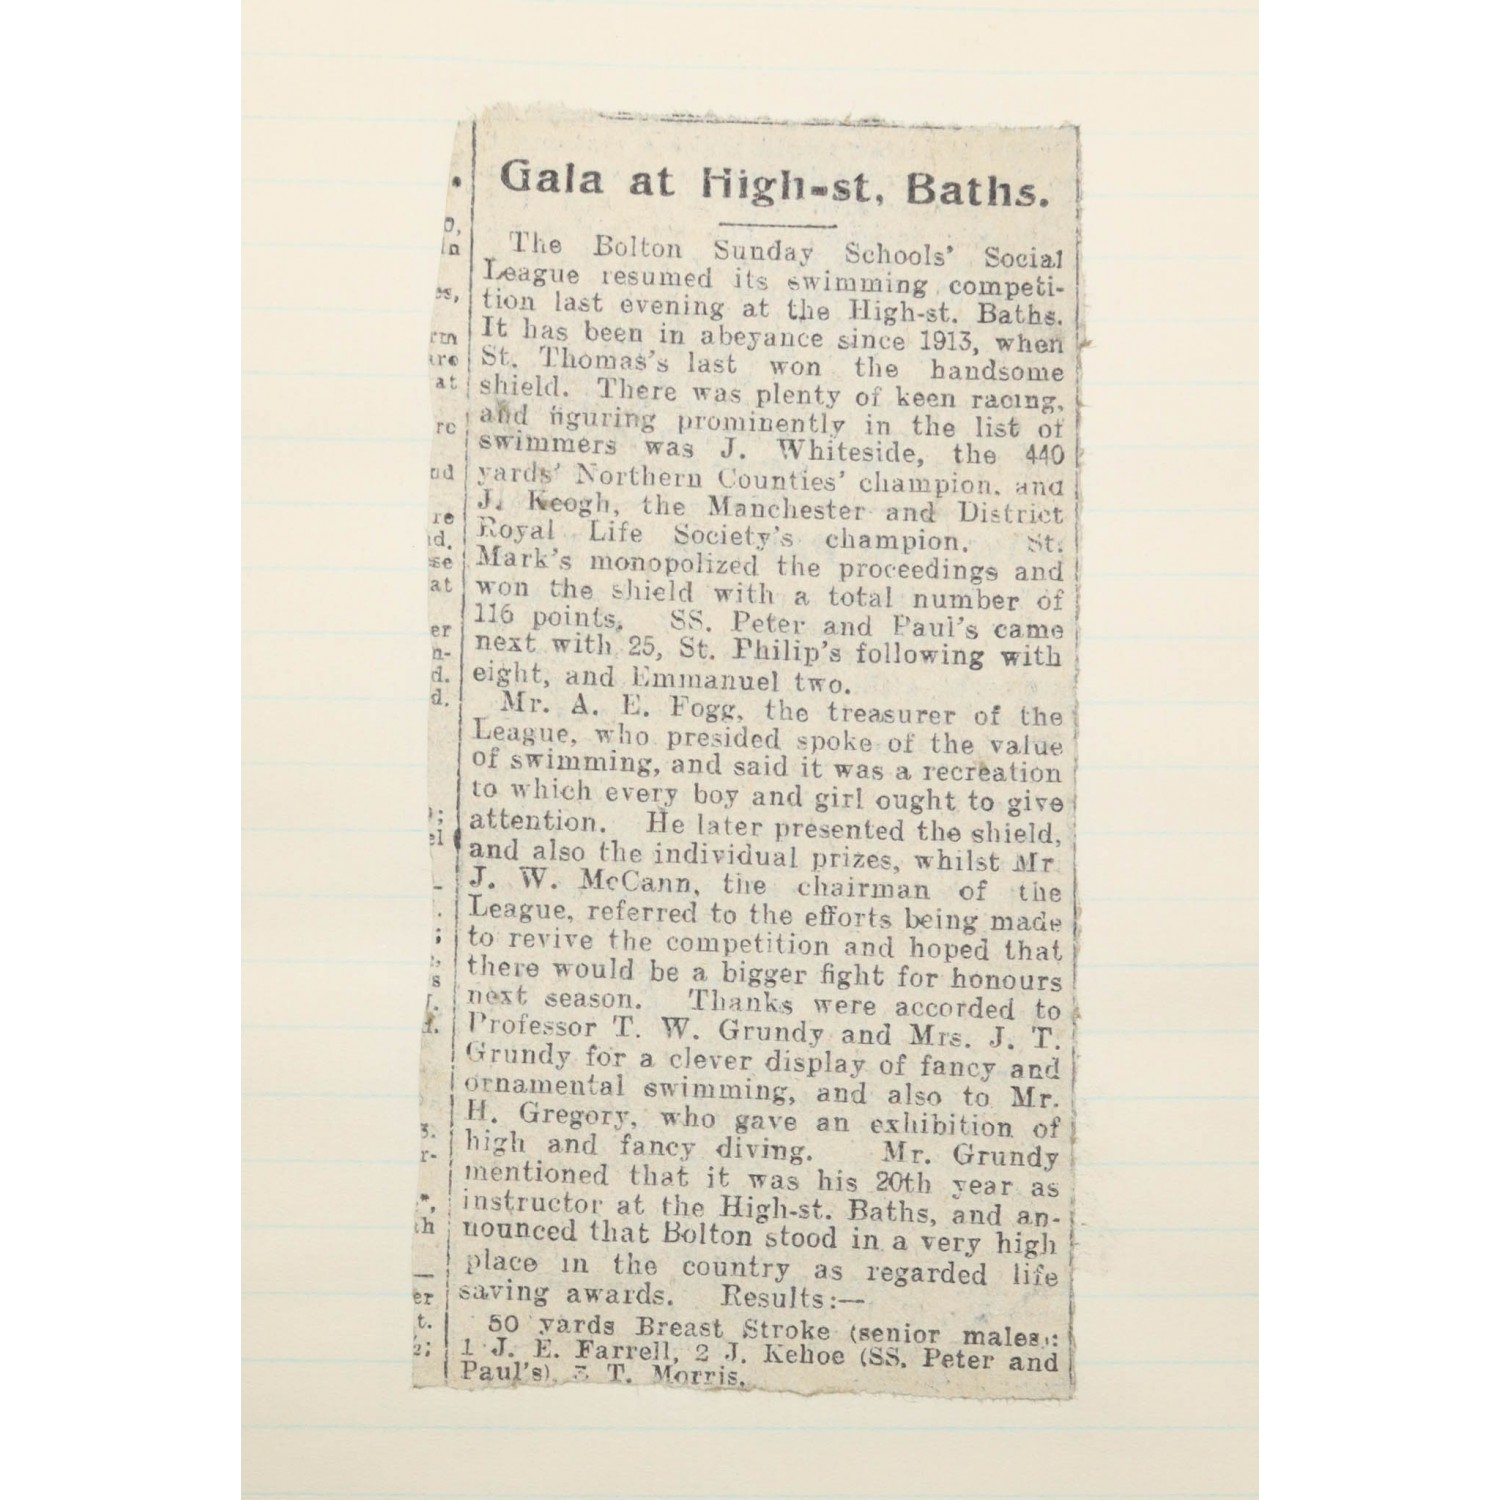 Gala at High-st. Baths.
The Bolton Sunday Schools' Social
League resumed its swimming competi-
tion last evening at the High-st. Baths.
It has been in abeyance since 1913, when
St. Thomas's last won the handsome
shield. There was plenty of keen racing,
and figuring prominently in the list of
swimmers was J. Whiteside, the 440
yards' Northern Counties' champion, and
J. Keogh, the Manchester and District
Royal Life Society's champion. St.
Mark's monopolized the proceedings and
won the shield with a total number of
116 points. SS. Peter and Paul's came
next with 25, St. Philip's following with
eight, and Emmanuel two.
Mr. A. E. Fogg, the treasurer of the
League, who presided spoke of the value
of swimming, and said it was a recreation
to which every boy and girl ought to give
attention. He later presented the shield,
and also the individual prizes, whilst Mr
J. W. McCann, the chairman of the
League, referred to the efforts being made
to revive the competition and hoped that
there would be a bigger fight for honours
next season. Thanks were accorded to
Professor T. W. Grundy and Mrs. J. T.
Grundy for a clever display of fancy and
ornamental swimming, and also to Mr.
H. Gregory, who gave an exhibition of
high and fancy diving. Mr. Grundy
mentioned that it was his 20th year as
instructor at the High-st. Baths, and an-
nounced that Bolton stood in a very high
place in the country as regarded life
saving awards. Results:—
50 yards Breast Stroke (senior males):
1 J. E. Farrell, 2 J. Kehoe (SS. Peter and
Paul's), 3 T. Morris.